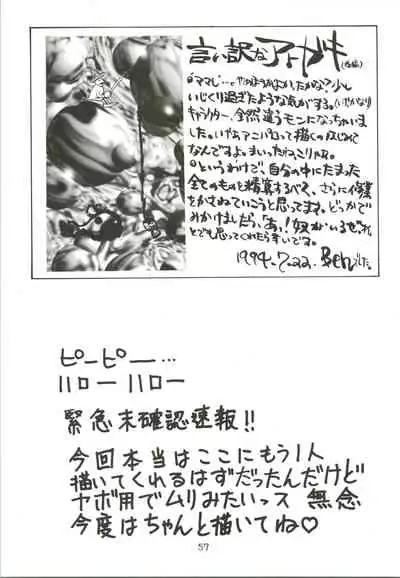 言い訳なアトガキ(後編)
いじくり過ぎたような気がする。
キャラクター、全然違うモンになっちゃいま
した。いやらアニパロって描くのはじめて
なんですよ。まいったねこりゃ。
というわけで、自分の中にたまった
全てのものを精算するべく、さらに修業
をかさねていこうと思ってます。どっかで
みかけましたら、「あ!奴がいるぜ」
とでも思ってくれたら幸いです。
1994.7.22. Benでした。
ピーピー…
ハロー ハロー
緊急未確認速報!!
今回本当はここにもう1人
描いてくれるはずだったんだけど
ヤボ用でムリみたいっス 無念
今度はちゃんと描いてね♡
57